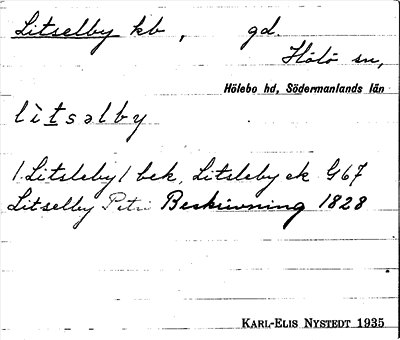 Litselby kb, gd.
Hölö sn,
Hölebo hd, Södermanlands län
lìtsəlby
/:Litsleby/ bek, Litsleby ek G67
Litselby Petri Beskrivning 1828
KARL-ELIS NYSTEDT 1935